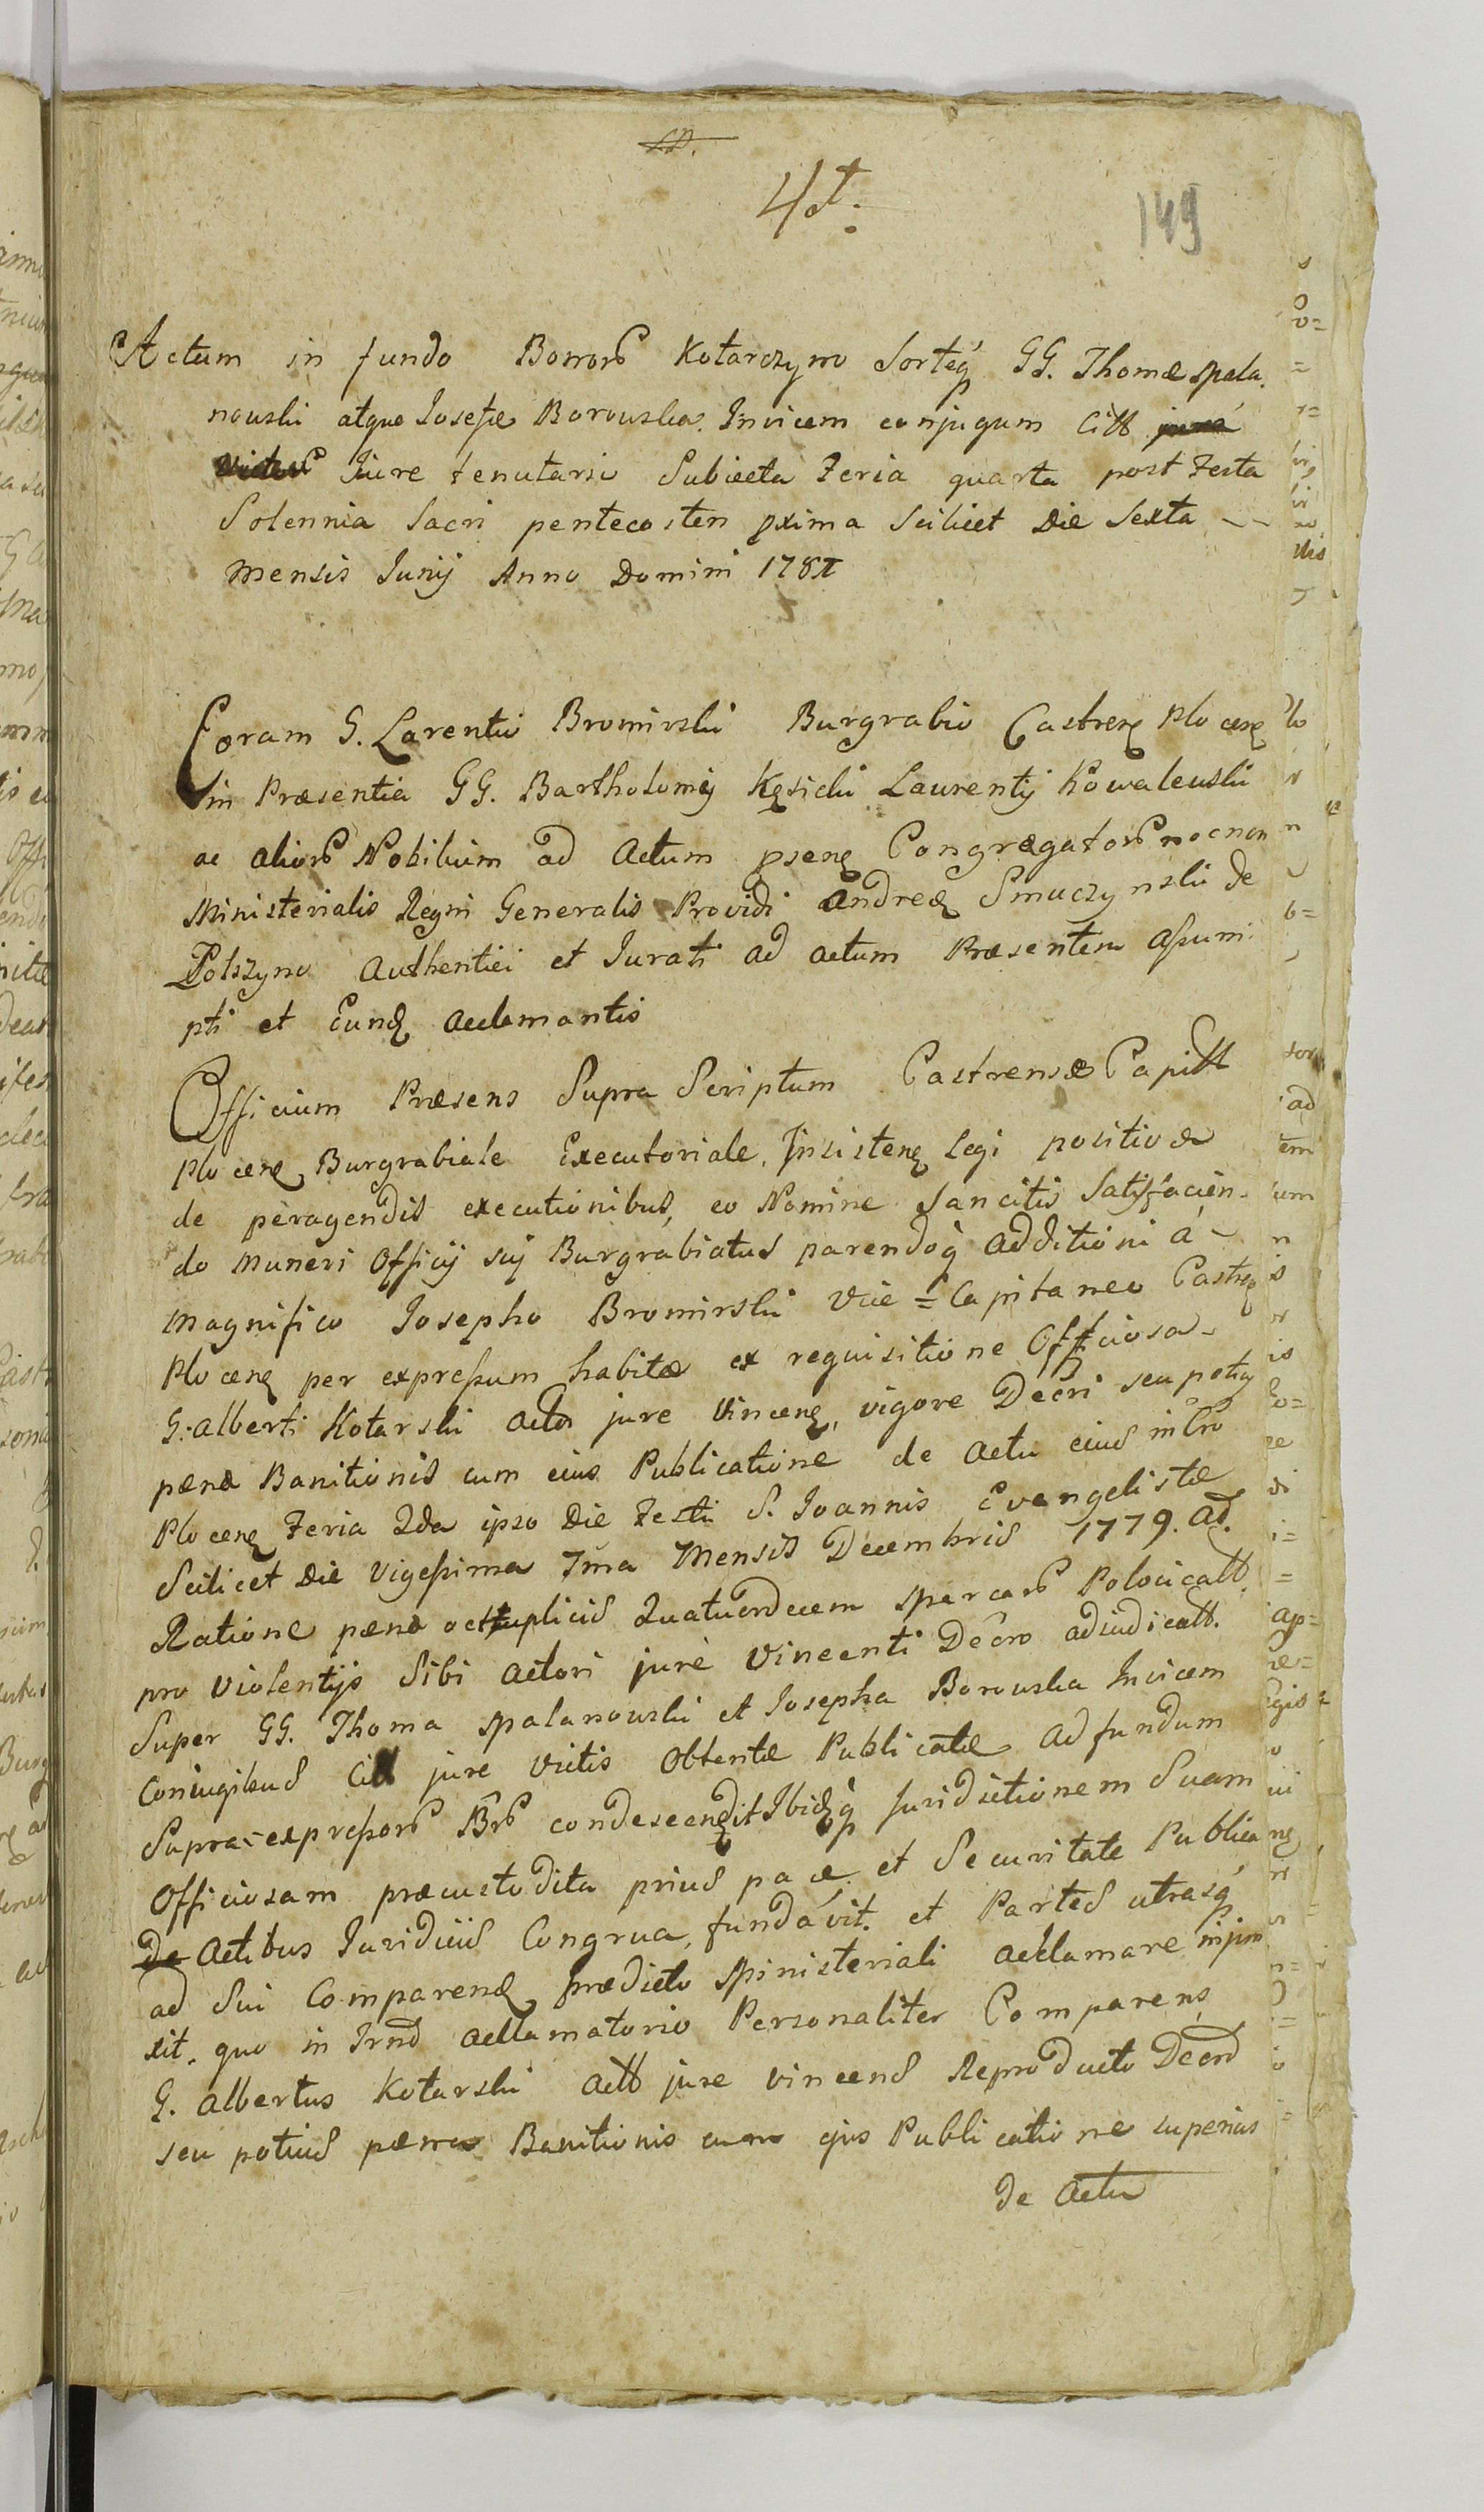 4t.
149
Actum in fundo Bonor Kotarczyno Sorteq GG. Thomæ Spala.
nowski atque Josefæ Borowska Invicem conjugum Citt
Jure tenutario Subiecta Feria quarta post Festa
Solennia Sacri pentecosten pxima Scilicet Die Sexta --
Mensis Junij Anno Domini
Coram G. Larentio Bromirski Burgrabio Castren Plocen
in Præsentia GG. Bartholomej Kęsicki Laurentij Kowalewski
ac alior Nobilium ad Actum psen Congregator necnon
Ministerialis Regni Generalis Providi Andreæ Smuczynski de
Polszyno Authentici et Jurati ad actum Præsentem assum:
pti et Eund acclamantis
Officium Præsens Supra Scriptum Castrense Capitt
Plocen Burgrabiale Executoriale, Insisten Legi positivæ
de peragendis executionibus, eo Nomine Sancitis Satisfacien-
do Muneri Officij sui Burgrabiatus parendoq additioni á -
Magnifico Josepho Bromirski Vice = Capitaneo Castren
Plocen per expressum habitæ ex requisitione Officiosa -
G. Alberti Kotarski Acto jure Vincen, vigore Decri seu potiq
pænæ Banitionis cum eius Publicatione de Actu eius in Cro
Plocen Feria 2da ipso Die Festi S. Joannis Evangelistæ
Scilicet Die Vigessima 7ma Mensis Decembris 1779. Ad.
Ratione pænæ octuplicis Quatuordecem Marcar Polonicatt.
pro Violentijs Sibi Actori jure Vincenti Decro adiudicatt.
Super GG. Thoma Spalanowski et Josepha Borowska Invicem
Coniugibus Citt jure Victis Obtentæ Publicatæ Ad fundum
Supra-expressor Br condescendit Ibidq Juridictionem Suam
Officiosam præcustodita prius pace et Securitate Publica
De Actibus Juridicis Congrua, fundávit. et Partes utrasq
ad Sui Comparend prædicto Ministeriali acclamare injun
xit, quo in Trno acclamatorio Personaliter Comparens
G. Albertus Kotarski Actt jure vincens Reproducto Decro
seu potius pæna Banitionis cum ejus Publicatione superius
de Actu